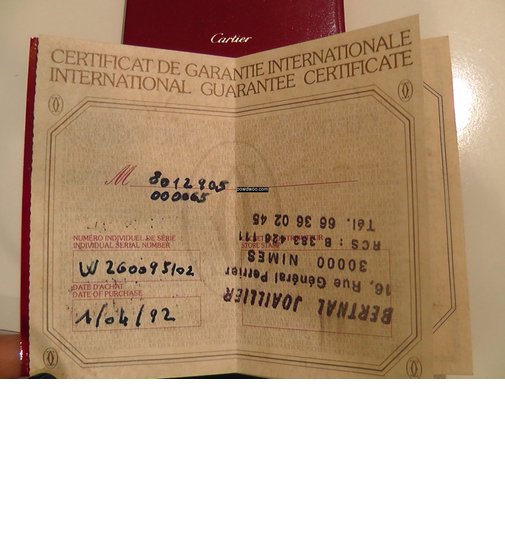 Cartier
CERTIFICAT DE GARANTIE INTERNATIONALE
INTERNATIONAL GUARANTEE CERTIFICATE
M 8012905
000065
powdwoo.com
NUMÉRO INDIVIDUEL DE SÉRIE
INDIVIDUAL SERIAL NUMBER
W260095102
DATE D'ACHAT
DATE OF PURCHASE
1/04/92
STORE STAMP
BERTNAL JOAILLIER
16, Rue Général Perrier
30000 NIMES
RCS : B 383 426 111
Tél. 66 36 02 45